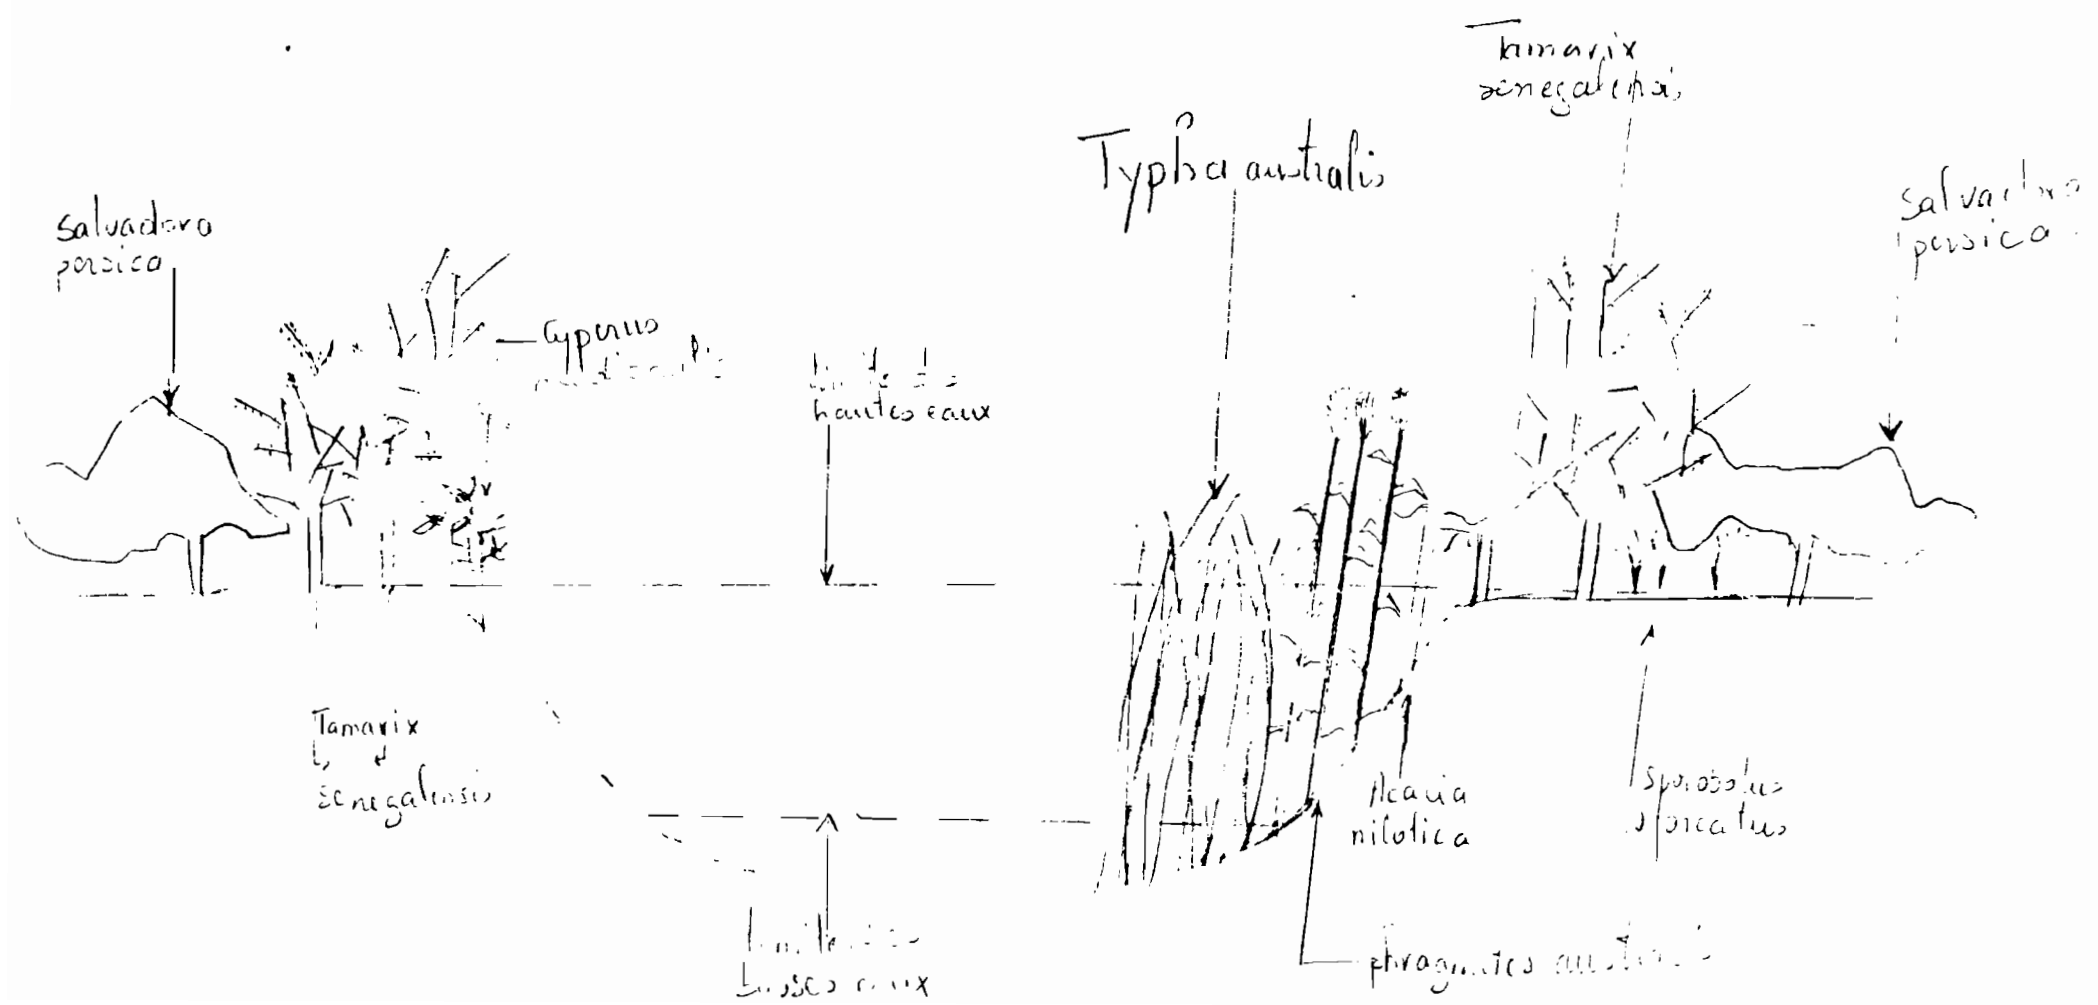 Tamarix
senegalensis
Typha australis
Salvadora
persica
Salvadora
persica
Cyperus
Limite des
hautes eaux
Tamarix
senegalensis
Acacia
nilotica
Sporobolus
spicatus
Limite des
basses eaux
phragmites australis